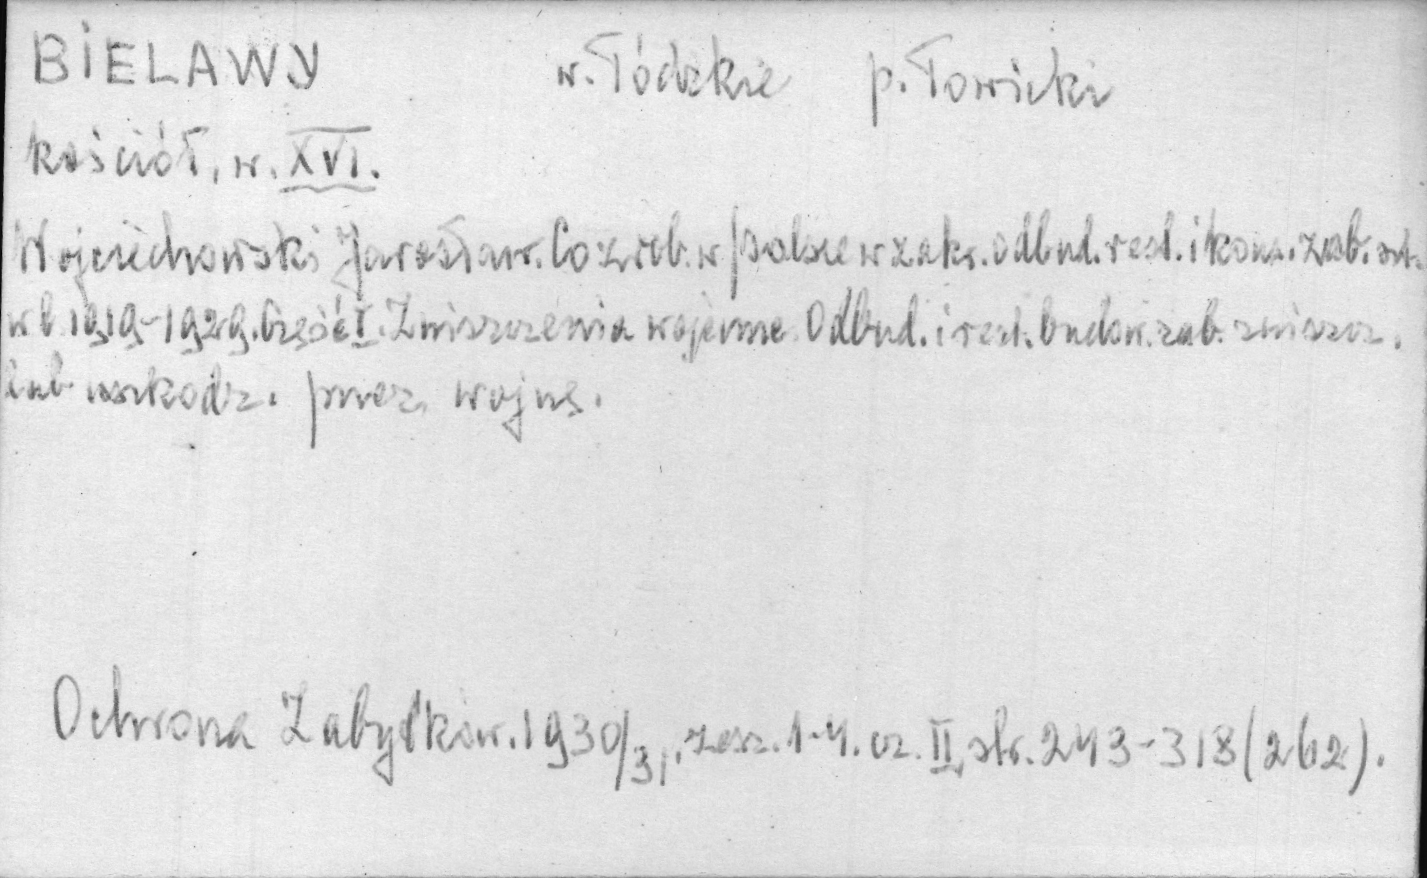 BIELAWY w. Łódzkie p. Łowicki
kościół, w. XVI.
Wojciechowski Jarosław. Co zrob. w Polsce w zakr. odbud. rest. i kons. zab. szt.
w l. 1919-1929. Część I. Zniszczenia wojenne. Odbud. i rest. budow. zab. zniszcz.
lub uszkodz. przez wojnę.
Ochrona Zabytków. 1930/31, zesz. 1-4. cz. II, str. 243-318 (262).